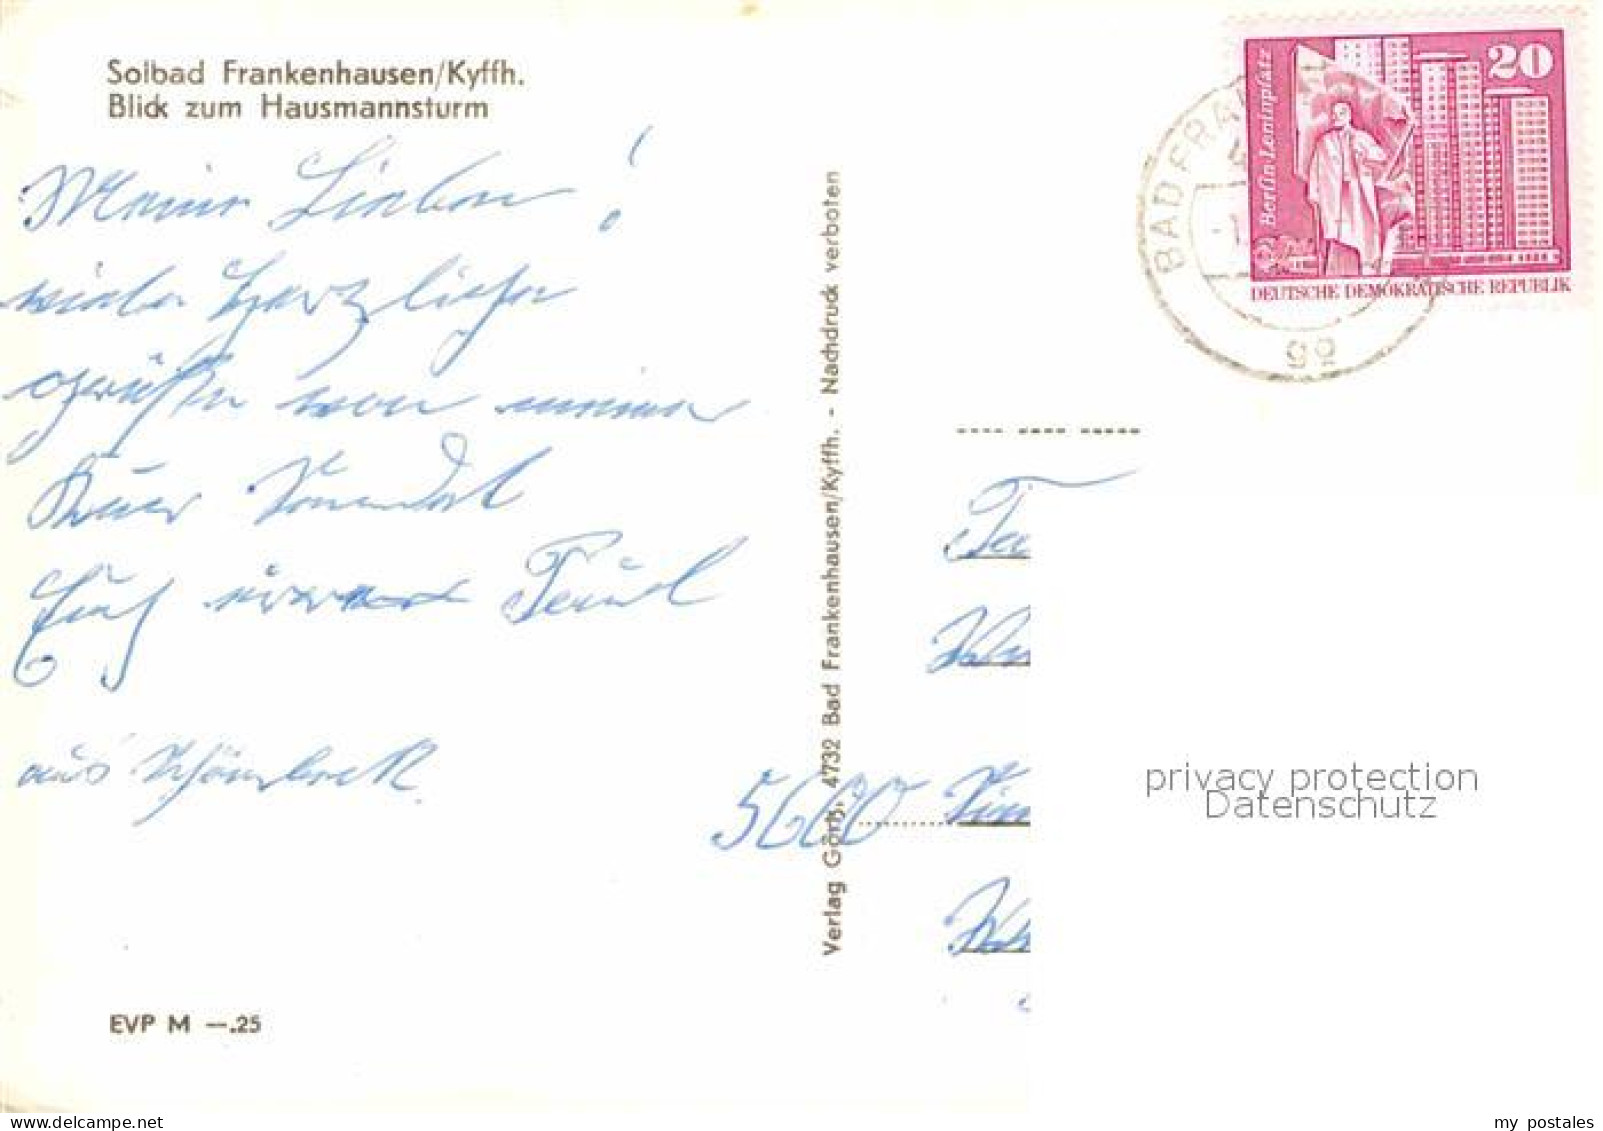 Solbad Frankenhausen/Kyffh.
Blick zum Hausmannsturm
Meine Lieben!
viele herzliche
Grüße von meiner
Kur sendet
Euch
aus Schönebeck
EVP M —.25
Verlag Görtz, 4732 Bad Frankenhausen/Kyffh. - Nachdruck verboten
20
Berlin-Leninplatz
DEUTSCHE DEMOKRATISCHE REPUBLIK
BAD FRA
ge
5600
privacy protection
Datenschutz
my postales